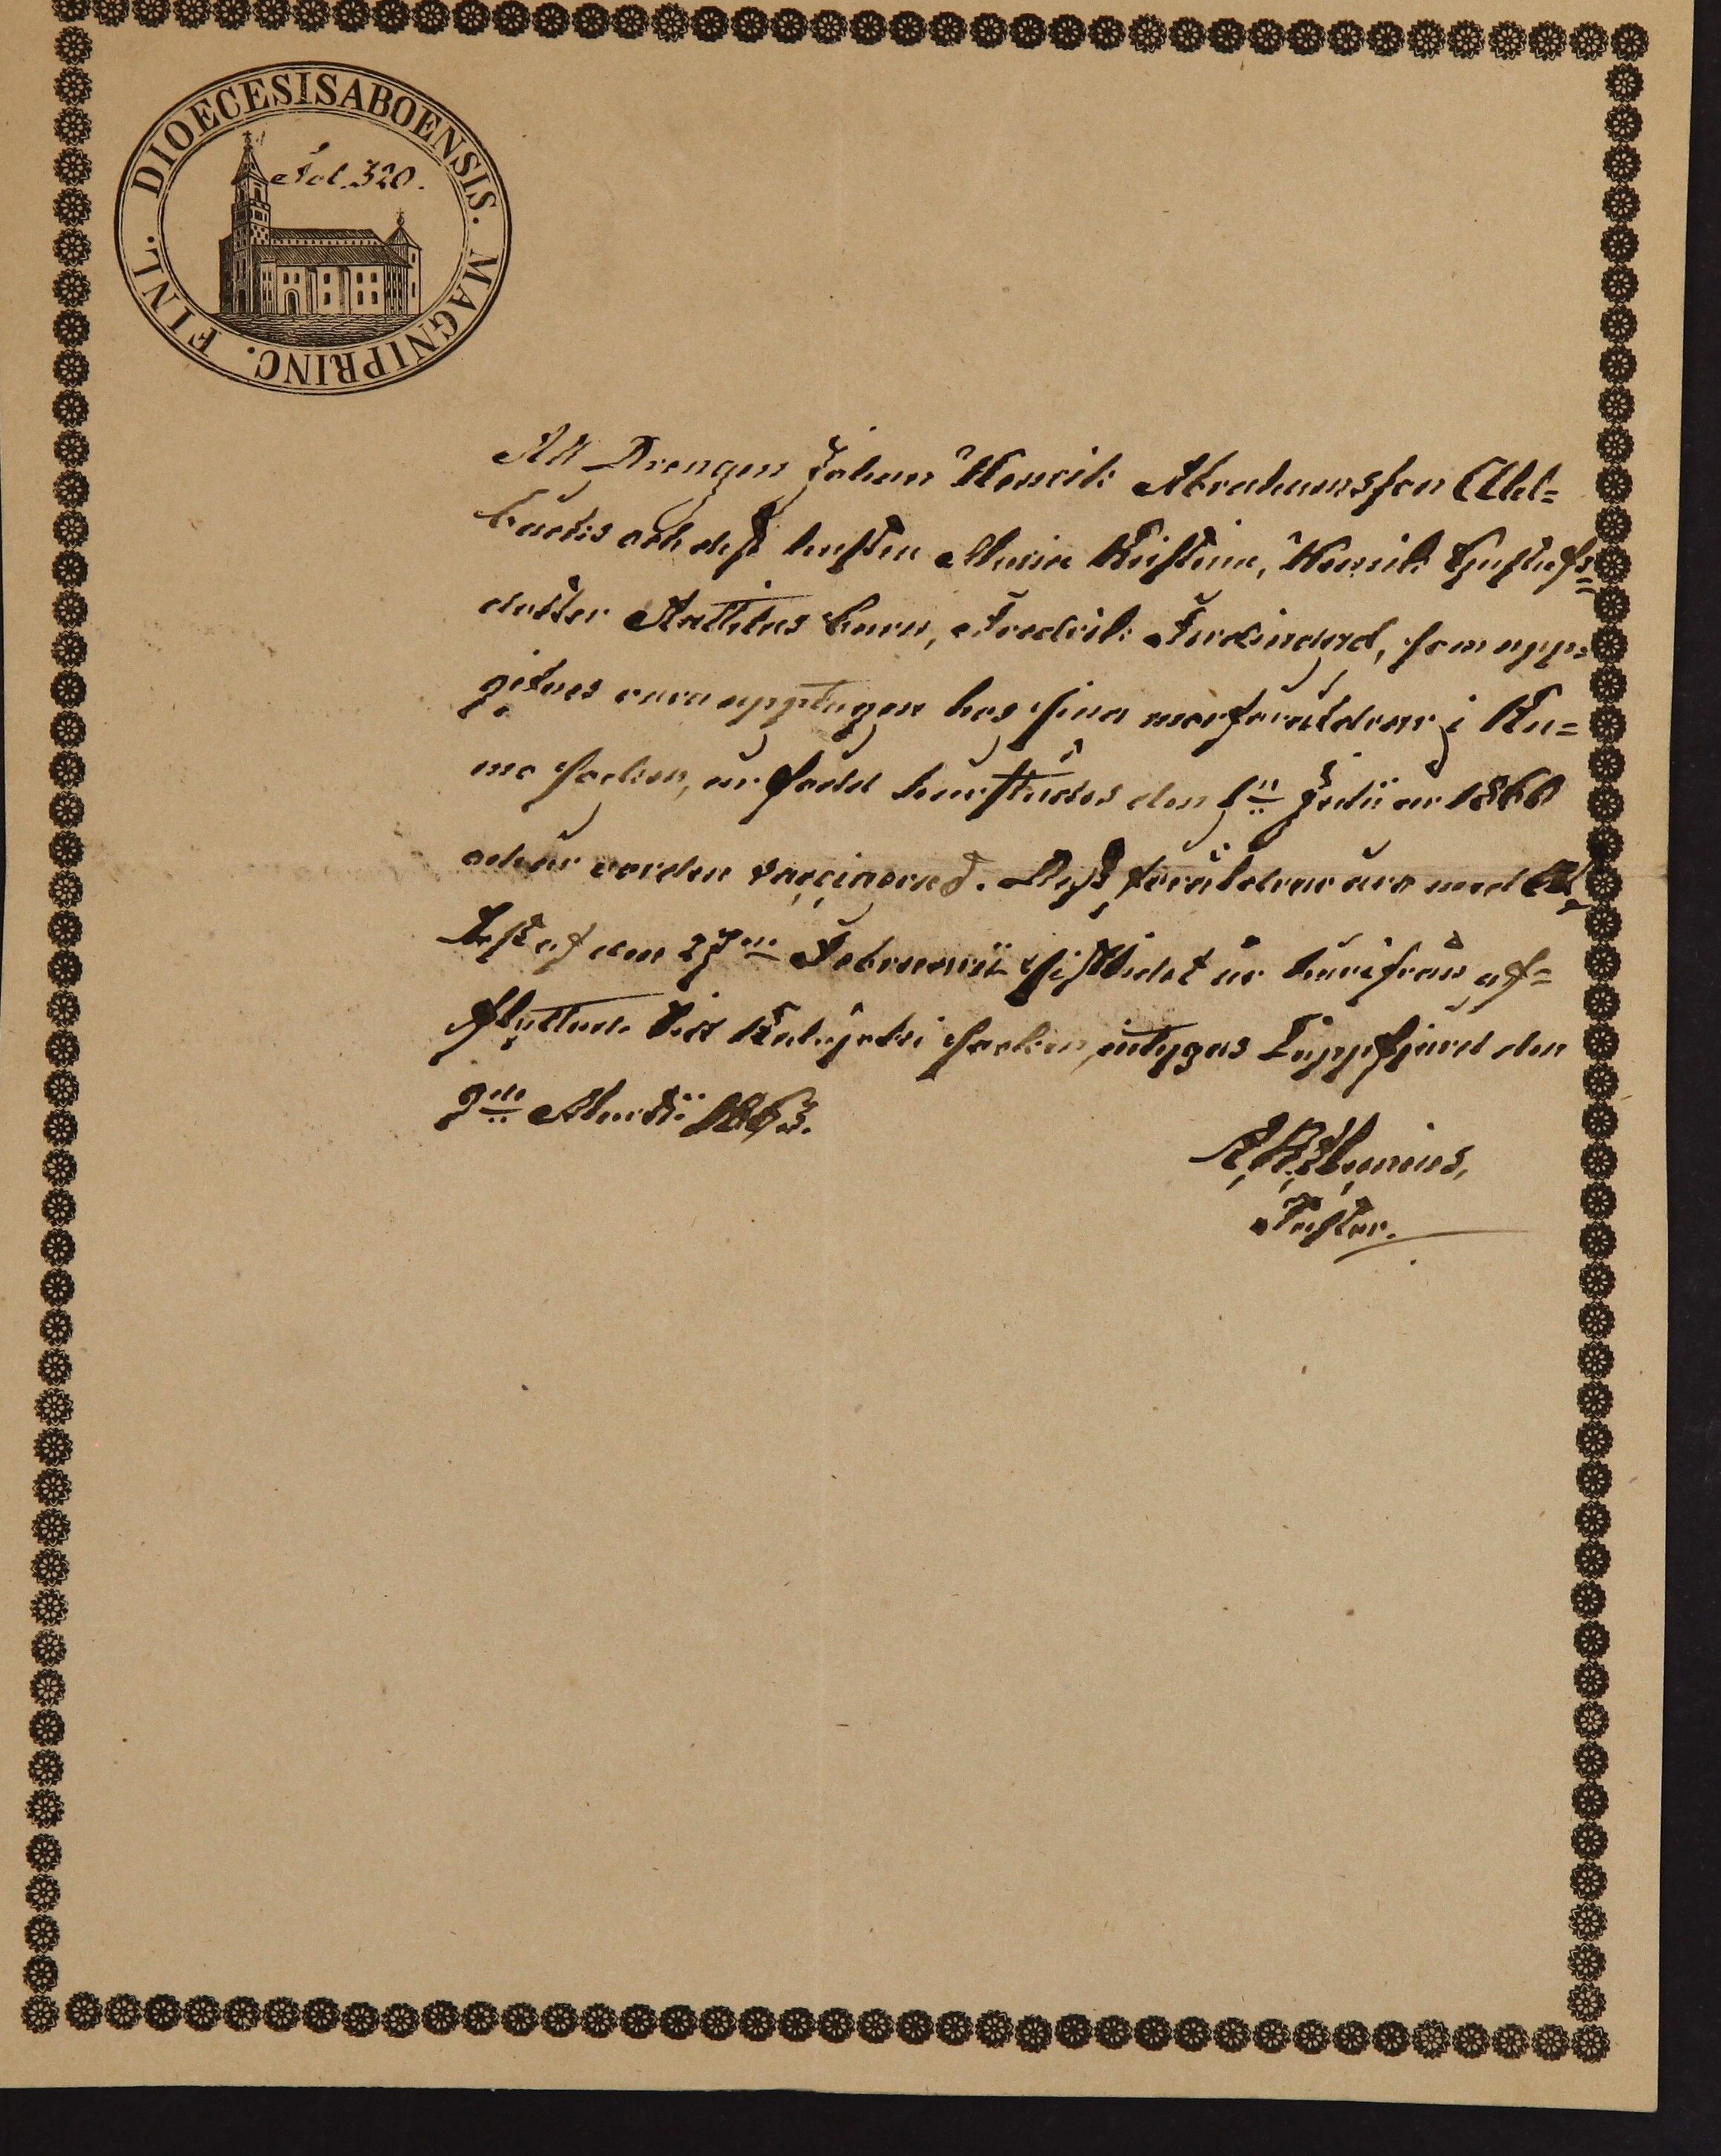 DIOECESIS ABOENSIS. MAGNI PRINC. FINL.
Fol. 320.
Att Drengen Johan Henrik Abrahamsson Ahl=
backs och dess hustru Maria Kristina, Henrik Gustafs=
dotter Kattilas barn, Fredrik Ferdinand, som upp=
gifves vara upptagen hos sina morföräldrar i Ku=
mo socken, är född härstädes den 1ⁿ Julii år 1860
och är vorden vaccinerad. Dess föräldrar äro med At=
test af den 27ⁿ Februarii sistlidet år härifrån af=
flyttade till socken, intygas Lappfjärd den
9ⁿ Martii 1863.
Pastor.